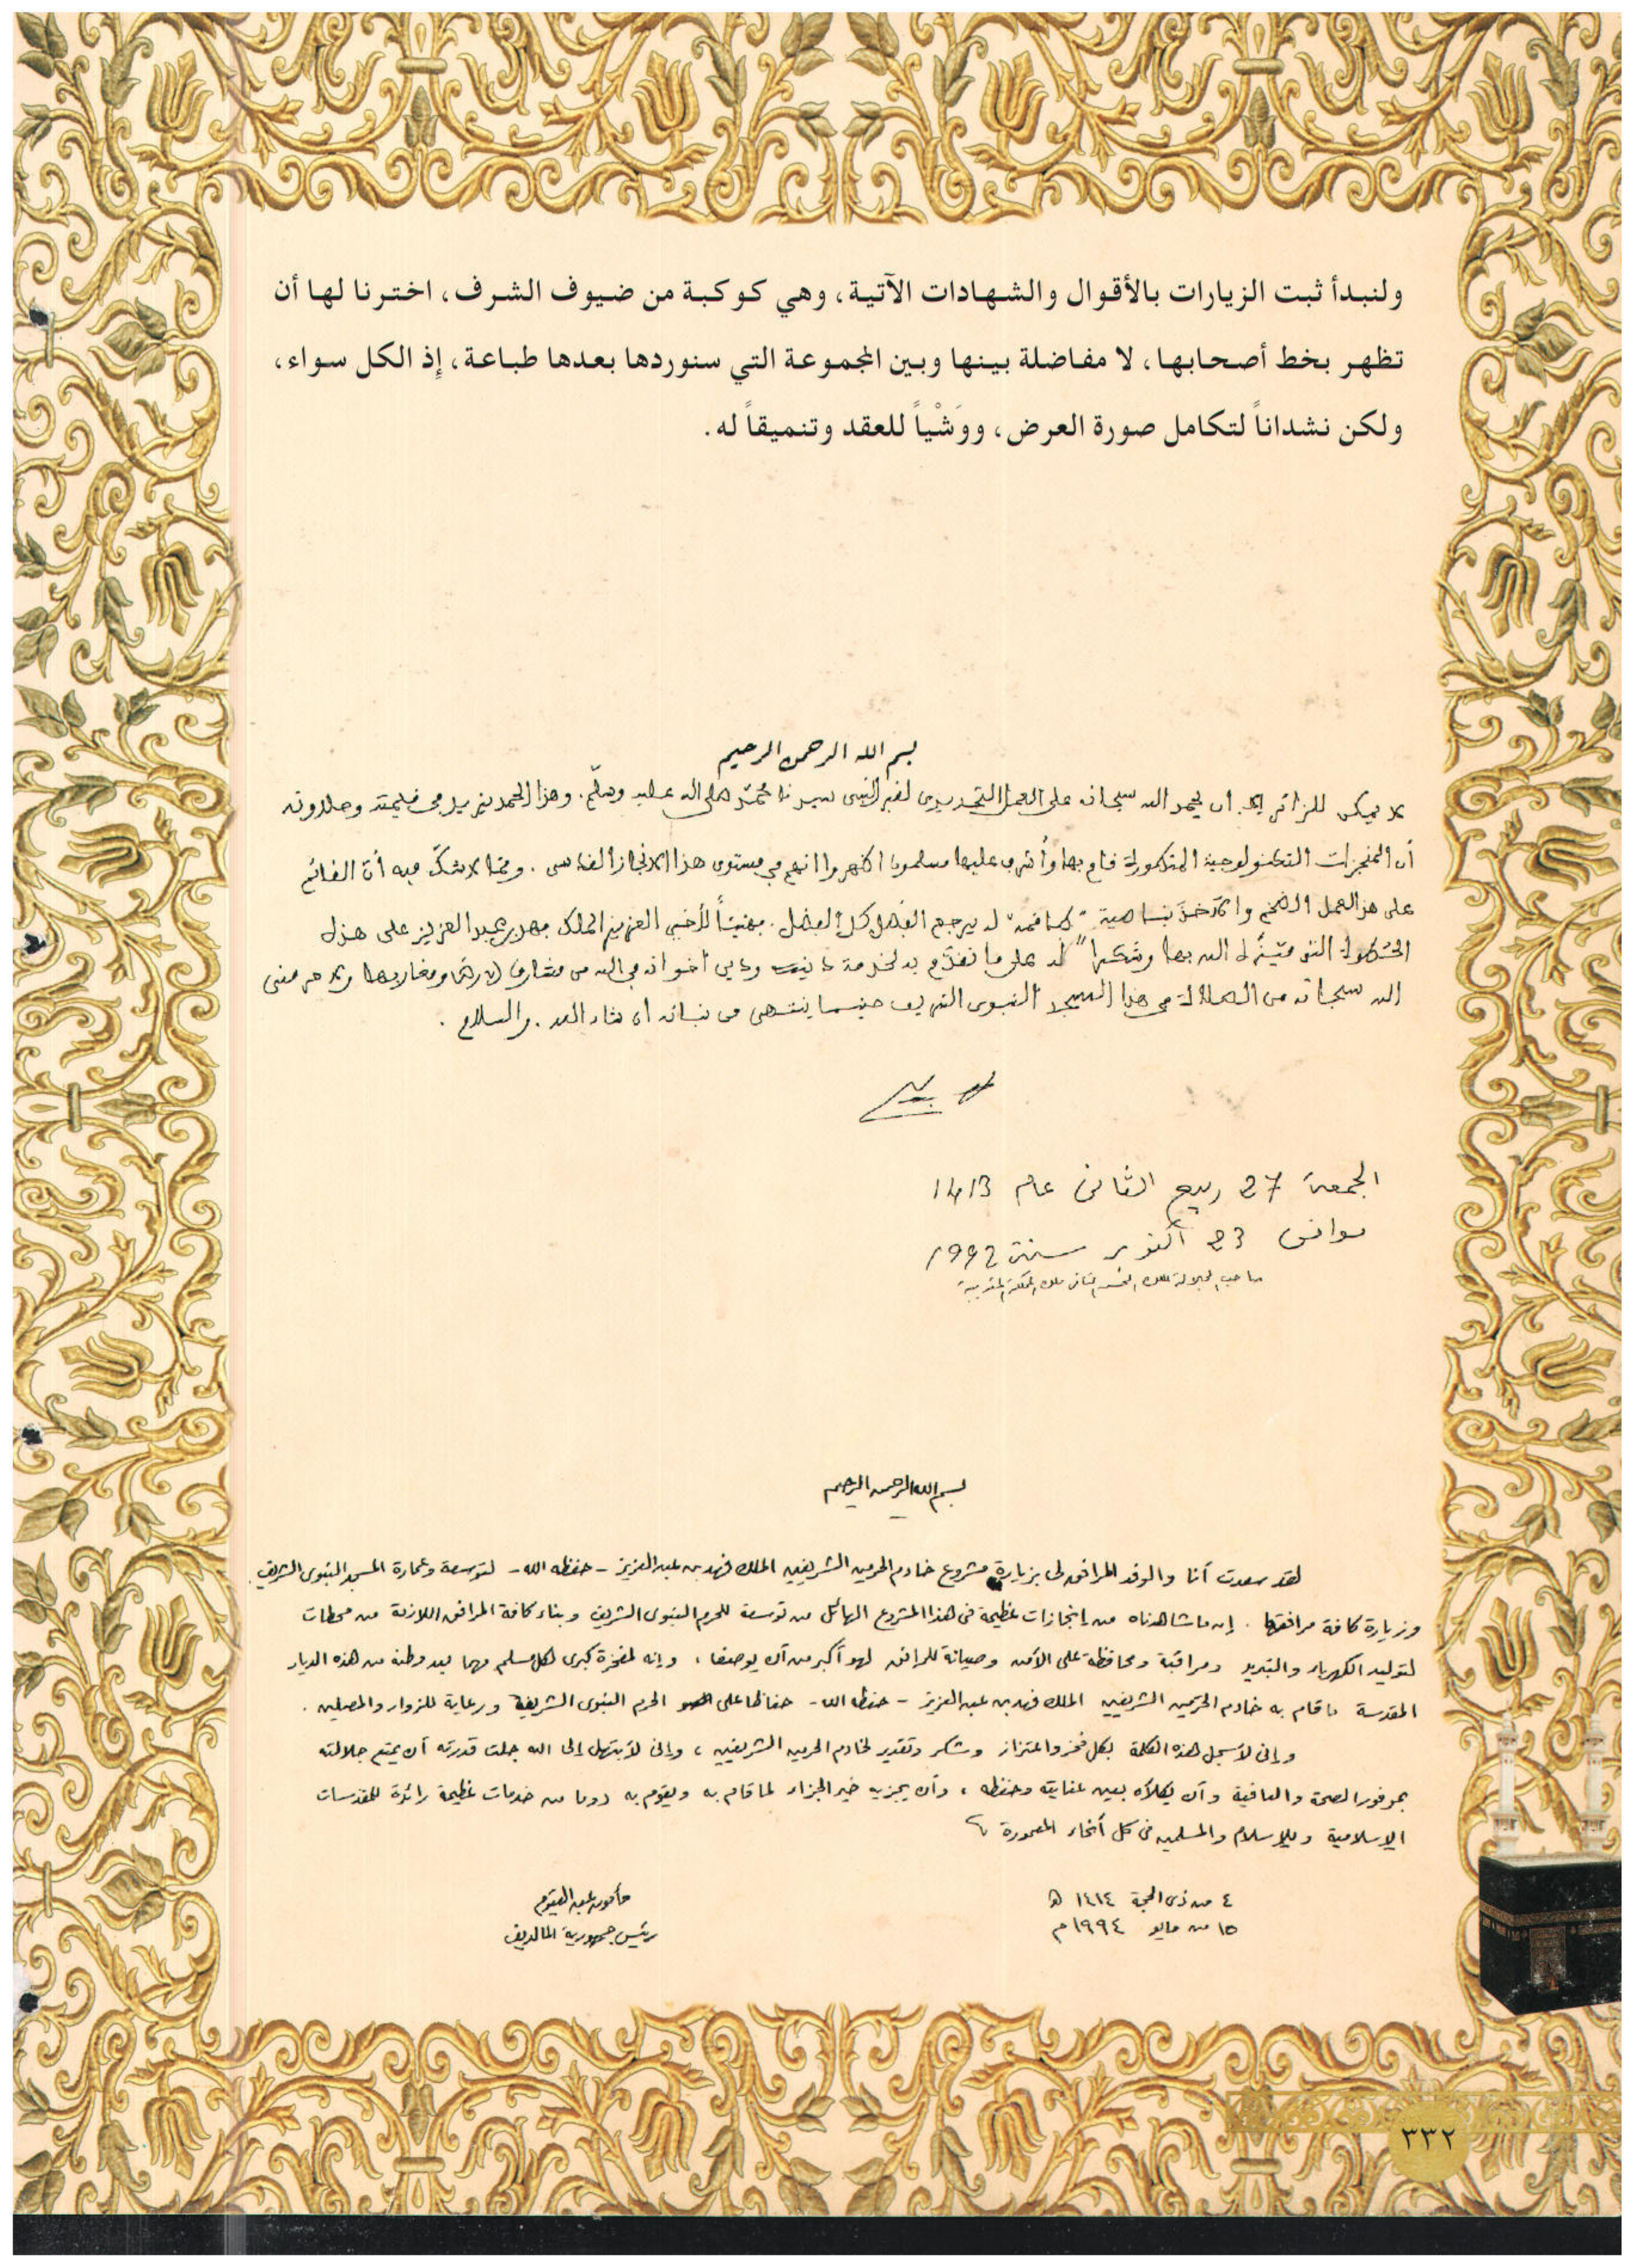 ولنبدأ ثبت الزيارات بالأقوال والشهادات الآتية، وهي كوكبة من ضيوف الشرف، اخترنا لها أن
تظهر بخط أصحابها، لا مفاضلة بينها وبين المجموعة التي سنوردها بعدها طباعة، إذ الكل سواء،
ولكن نشداناً لتكامل صورة العرض، ووَشْياً للعقد وتنميقاً له.
بسم الله الرحمن الرحيم
لا يمكن للزائر إلا أن يحمد الله سبحانه على العمل التجديدي لقبر النبي سيدنا محمد صلى الله عليه وسلّم. وهذا الحمد يزيد في قيمته وحلاوته
أن المنجزات التكنولوجية المذكورة قام بها وأشرف عليها مسلمون أظهروا انهم في مستوى هذا الانجاز القدسي. ومما لا شكّ فيه أن القائم
على هذا العمل الضخم والآخذ بناصية له يرجع الفضل كل الفضل. فهنيئاً لأخي العزيز الملك فهد بن عبد العزيز على هذه
الحظوة التي متّعه الله بها وشكراً له على ما تقدّم به لخدمة دينه ودين اخوانه في الله من مشارق الأرض ومغاربها ولا حرمني
الله سبحانه من الصلاة في هذا المسجد النبوي الشريف حينما ينتهى من بنائه ان شاء الله. والسلام.
الجمعة 27 ربيع الثاني عام 1413
موافق 23 أكتوبر سنة 1992
صاحب الجلالة الملك الحسن الثاني ملك المملكة المغربية
بسم الله الرحمن الرحيم
لقد سعدت أنا والوفد المرافق لى بزيارة مشروع خادم الحرمين الشريفين الملك فهد بن عبد العزيز - حفظه الله - لتوسعة وعمارة المسجد النبوى الشريف.
وزيارة كافة مرافقها. إن ما شاهدناه من إنجازات عظيمة فى هذا المشروع الهائل من توسعة للحرم النبوى الشريف وبناء كافة المرافق اللازمة من محطات
لتوليد الكهرباء والتبريد ومراقبة ومحافظة على الأمن وصيانة للمرافق لهو أكبر من أن يوصف، وإنه لمفخرة كبرى لكل مسلم مهما بعد وطنه من هذه الديار
المقدسة ما قام به خادم الحرمين الشريفين الملك فهد بن عبد العزيز - حفظه الله - حفاظا على الحرم النبوى الشريف ورعاية للزوار والمصلين.
وإنى لأسجل هذه الكلمة بكل فخر واعتزاز وشكر وتقدير لخادم الحرمين الشريفين، وإنى لأبتهل إلى الله جلت قدرته أن يمتع جلالته
بموفور الصحة والعافية وأن يكلأه بعين عنايته وحفظه، وأن يجزيه خير الجزاء لما قام به ويقوم به دوما من خدمات عظيمة رائدة للمقدسات
الإسلامية وللإسلام والمسلمين فى كل أنحاء المعمورة
٤ من ذى الحجة ١٤١٤ هـ
١٥ من مايو ١٩٩٤م
مأمون عبد القيوم
رئيس جمهورية المالديف
٣٣٢